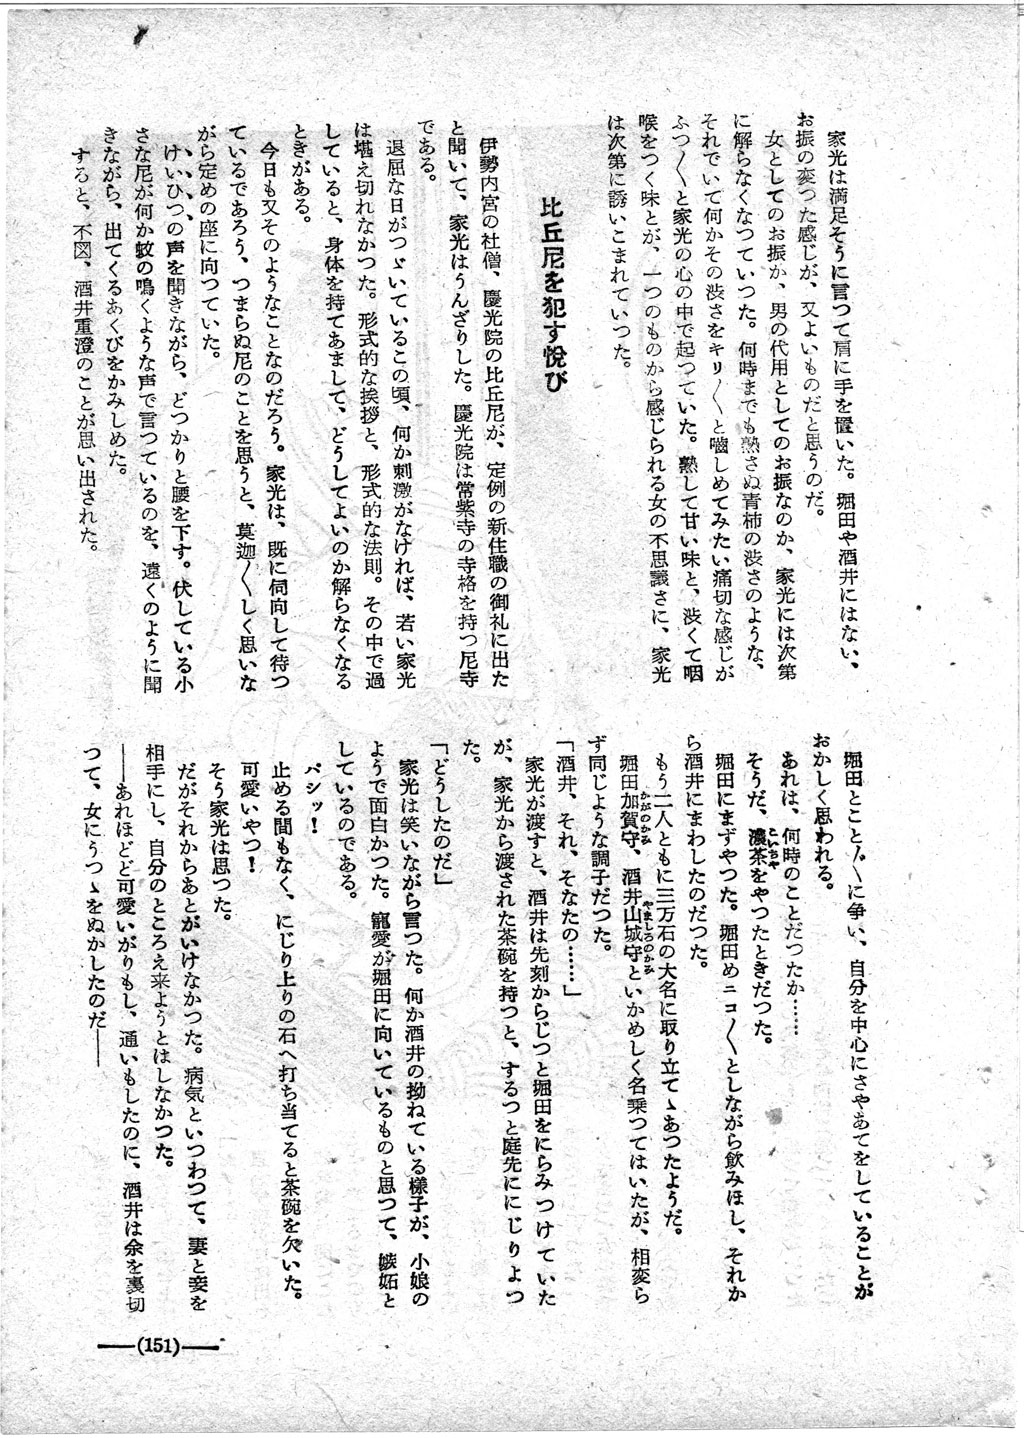 家光は満足そうに言つて肩に手を置いた。堀田や酒井にはない、
お振の変つた感じが、又よいものだと思うのだ。
女としてのお振か、男の代用としてのお振なのか、家光には次第
に解らなくなつていつた。何時までも熟さぬ青柿の渋さのような、
それでいて何かその渋さをキリ〱と嚙しめてみたい痛切な感じが
ふつ〱と家光の心の中で起つていた。熟して甘い味と、渋くて咽
喉をつく味とが、一つのものから感じられる女の不思議さに、家光
は次第に誘いこまれていつた。
比丘尼を犯す悦び
伊勢内宮の社僧、慶光院の比丘尼が、定例の新住職の御礼に出た
と聞いて、家光はうんざりした。慶光院は常紫寺の寺格を持つ尼寺
である。
退屈な日がつゞいているこの頃、何か刺激がなければ、若い家光
は堪え切れなかつた。形式的な挨拶と、形式的な法則。その中で過
していると、身体を持てあまして、どうしてよいのか解らなくなる
ときがある。
今日も又そのようなことなのだろう。家光は、既に伺向して待つ
ているであろう、つまらぬ尼のことを思うと、莫迦〱しく思いな
がら定めの座に向つていた。
けいひつの声を聞きながら、どつかりと腰を下す。伏している小
さな尼が何か蚊の鳴くような声で言つているのを、遠くのように聞
きながら、出てくるあくびをかみしめた。
すると、不図、酒井重澄のことが思い出された。
堀田とこと〲に争い、自分を中心にさやあてをしていることが
おかしく思われる。
あれは、何時のことだつたか……
そうだ、濃茶をやつたときだつた。
堀田にまずやつた。堀田めニコ〱としながら飲みほし、それか
ら酒井にまわしたのだつた。
もう二人ともに三万石の大名に取り立てゝあつたようだ。
堀田加賀守、酒井山城守といかめしく名乗つてはいたが、相変ら
ず同じような調子だつた。
「酒井、それ、そなたの……」
家光が渡すと、酒井は先刻からじつと堀田をにらみつけていた
が、家光から渡された茶碗を持つと、するつと庭先ににじりよつ
た。
「どうしたのだ」
家光は笑いながら言つた。何か酒井の拗ねている様子が、小娘の
ようで面白かつた。寵愛が堀田に向いているものと思つて、嫉妬と
しているのである。
パシッ！
止める間もなく、にじり上りの石へ打ち当てると茶碗を欠いた。
可愛いやつ！
そう家光は思つた。
だがそれからあとがいけなかつた。病気といつわつて、妻と妾を
相手にし、自分のところえ来ようとはしなかつた。
――あれほどど可愛いがりもし、通いもしたのに、酒井は余を裏切
つて、女にうつゝをぬかしたのだ――
(151)